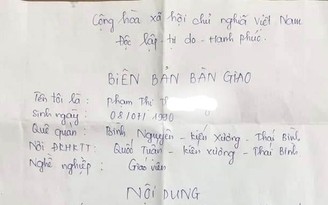 Cộng hòa xã hội chủ nghĩa Việt Nam
Độc lập - tự do - Hạnh phúc.
BIÊN BẢN BÀN GIAO
Tên tôi là : Phạm Thị T
Sinh ngày : 08/07/1990
Quê quán : Bình Nguyên - Kiến Xương - Thái Bình
Nơi ĐKHKTT: Quốc Tuấn - Kiến Xương - Thái Bình
Nghề nghiệp : Giáo viên
NỘI DUNG